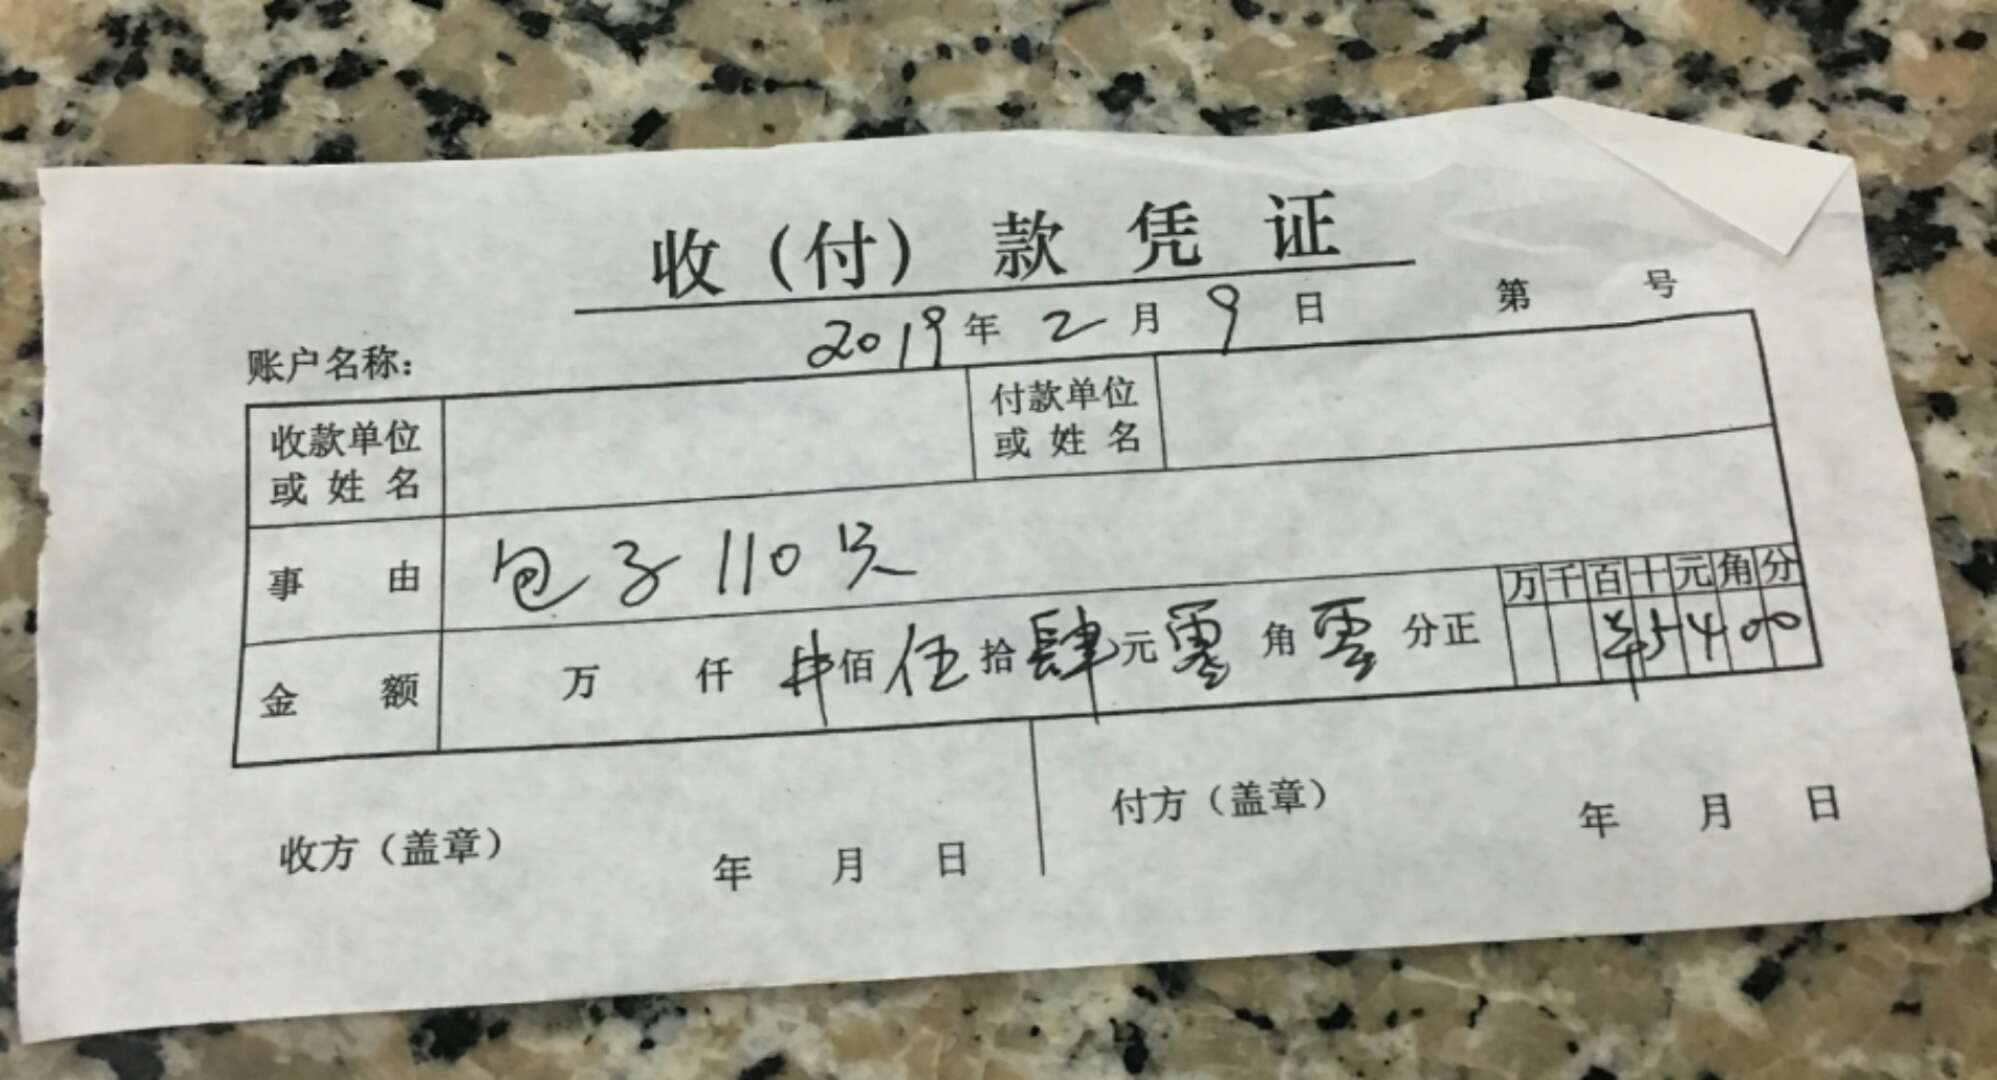 收（付）款凭证
2019年2月9日 第 号
账户名称：
收款单位或姓名 付款单位或姓名
事由 包子110只
万千百十元角分
金额 万 仟 #佰伍拾肆元零角零分正 ¥5400
收方（盖章） 年 月 日
付方（盖章） 年 月 日